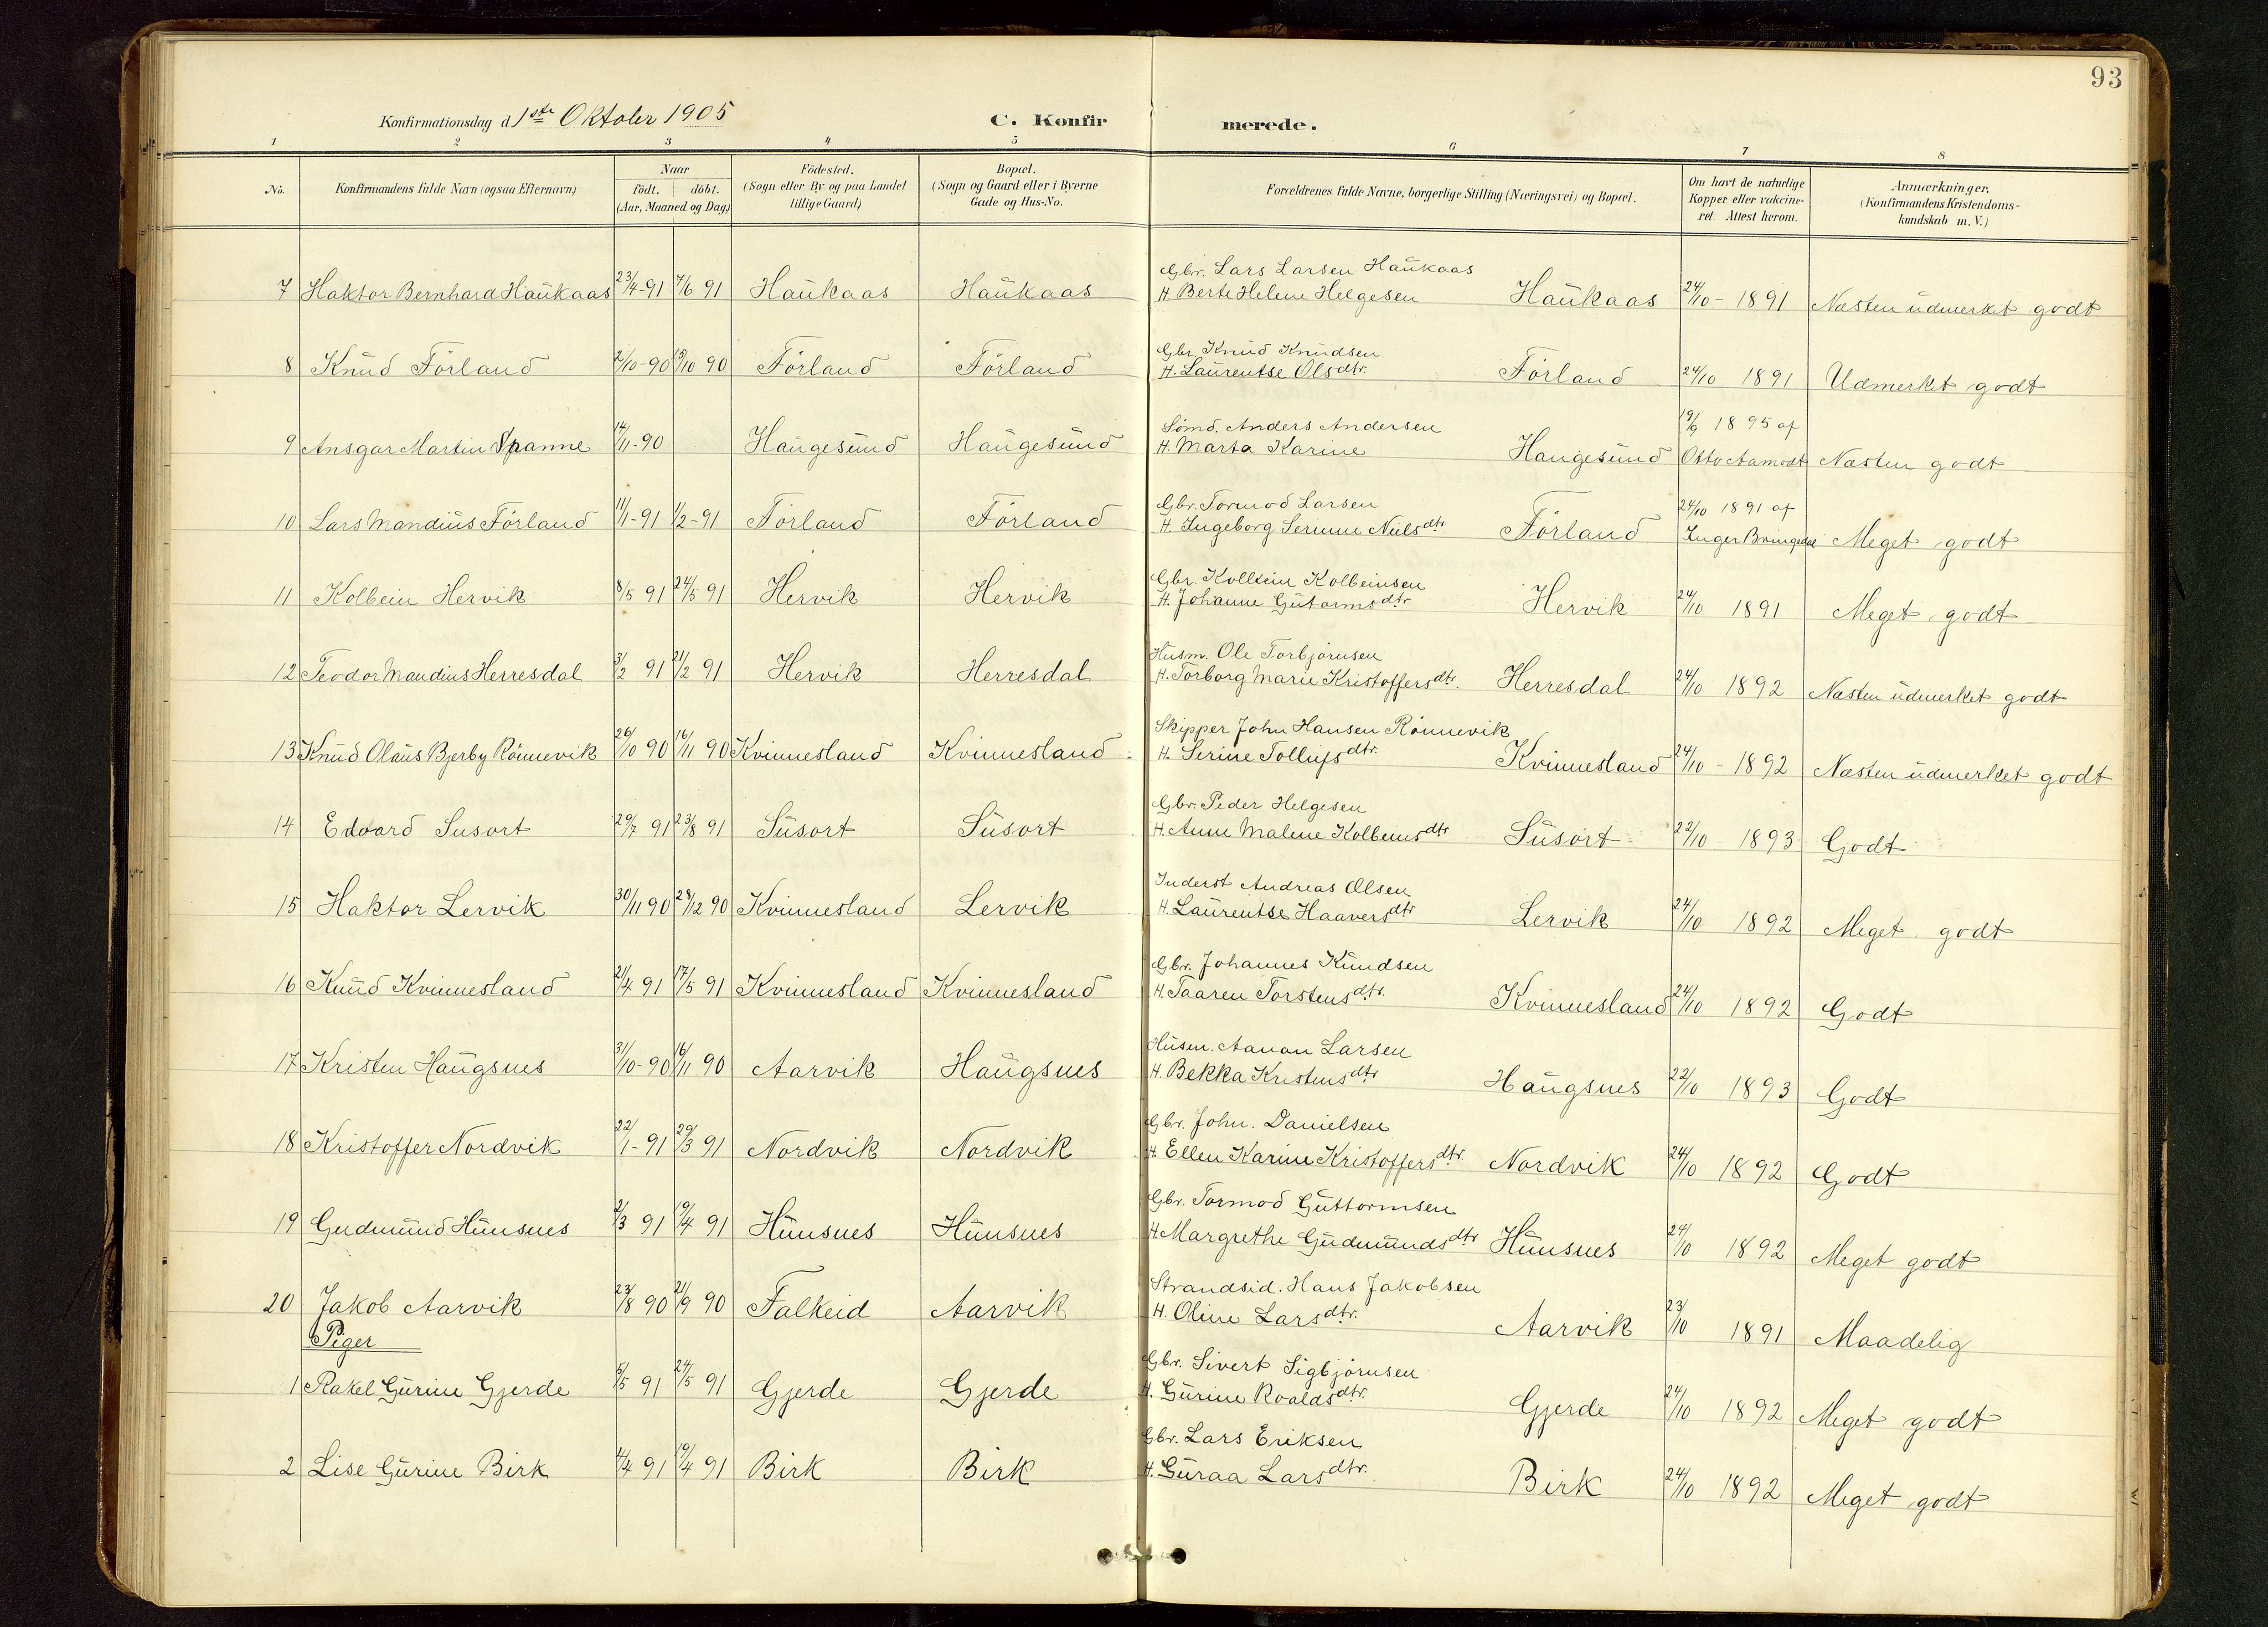 93
Konfirmationsdag d. 1ste Oktober 1905
C. Konfirmerede.
1 2 3 4 5 6 7 8
No. Konfirmandens fulde Navn (ogsaa Efternavn) Naar födt. döbt. (Aar, Maaned og Dag) Födested. (Sogn eller By og paa Landet tillige Gaard) Bopæl. (Sogn og Gaard eller i Byerne Gade og Hus-No. Forældrenes fulde Navne, borgerlige Stilling (Næringsvei) og Bopæl. Om havt de naturlige Kopper eller vakcineret. Attest herom. Anmærkninger. (Konfirmandens Kristendomskundskab m. V.)
Gbr. Lars Larsen Haukaas
7 Haktor Bernhard Haukaas 23/4-91 7/6 91 Haukaas Haukaas H. Berte Helene Helgesen Haukaas 24/10 - 1891 Næsten udmerket godt
Gbr Knud Knudsen
8 Knud Förland 2/10-90 19/10 90 Förland Förland H. Laurentse Olsdtr. Förland 24/10 1891 Udmerket godt
Sömd. Anders Andersen 19/9 1895 af
9 Ansgar Martin Spanne 14/11-90 Haugesund Haugesund H. Marta Karine Haugesund Otto Aamodt Næsten godt
Gbr. Tormod Larsen 24/10 1891 af
10 Lars Mandius Förland 11/1-91 1/2-91 Förland Förland H. Ingeborg Serinne Nielsdtr Förland Inger Bringedal Meget godt
Gbr. Kolltein Kolbeinsen
11 Kolbein Hervik 8/5 91 24/5 91 Hervik Hervik H. Johanne Gutormsdtr Hervik 24/10 1891 Meget godt
Husm. Ole Torbjörnsen
12 Teodor Mandius Herresdal 3/2 91 21/2 91 Hervik Herresdal H. Torborg Marie Kristoffersdtr. Herresdal 24/10 1892 Næsten udmerket godt
Skipper John Hansen Rönnevik
13 Knud Olaus Bjerby Rönnevik 26/10 90 16/11 90 Kvinnesland Kvinnesland H. Serine Tollufsdtr. Kvinnesland 24/10 - 1892 Næsten udmerket godt
Gbr. Peder Helgesen
14 Edvard Susort 29/7 91 23/8 91 Susort Susort H. Anne Malene Kolbeinsdtr Susort 22/10 - 1893 Godt
Inderst Andreas Olsen
15 Haktor Lervik 30/11 90 28/12 90 Kvinnesland Lervik H. Laurentse Haaversdtr Lervik 24/10 1892 Meget godt
Gbr. Johannes Knudsen
16 Knud Kvinnesland 21/4 91 17/5 91 Kvinnesland Kvinnesland H. Taaren Torstensdtr. Kvinnesland 24/10 1892 Godt
Husm. Aanan Larsen
17 Kristen Haugsnes 31/10-90 16/11 90 Aarvik Haugsnes H. Bekka Kristensdtr Haugsnes 22/10 1893 Godt
Gbr. John. Danielsen
18 Kristoffer Nordvik 22/1-91 29/3 91 Nordvik Nordvik H. Ellen Karine Kristoffersdtr. Nordvik 24/10 1892 Godt
Gbr. Tormod Guttormsen
19 Gudmund Hunsnes 2/3 91 19/4 91 Hunsnes Hunsnes H Margrethe Gudmundsdtr Hunsnes 24/10 1892 Meget godt
Strandsid. Hans Jakobsen
20 Jakob Aarvik 23/8 90 21/9 90 Falkeid Aarvik H. Oline Larsdtr. Aarvik 23/10 1891 Maadelig
Piger
Gbr. Sivert Sigbjörnsen
1 Rakel Gurine Gjerde 5/5 91 24/5 91 Gjerde Gjerde H. Gurine Roaldsdtr. Gjerde 24/10 1892 Meget godt
Gbr. Lars Eriksen
2 Lise Gurine Birk 4/4 91 19/4 91 Birk Birk H. Guraa Larsdtr. Birk 24/10 1892 Meget godt